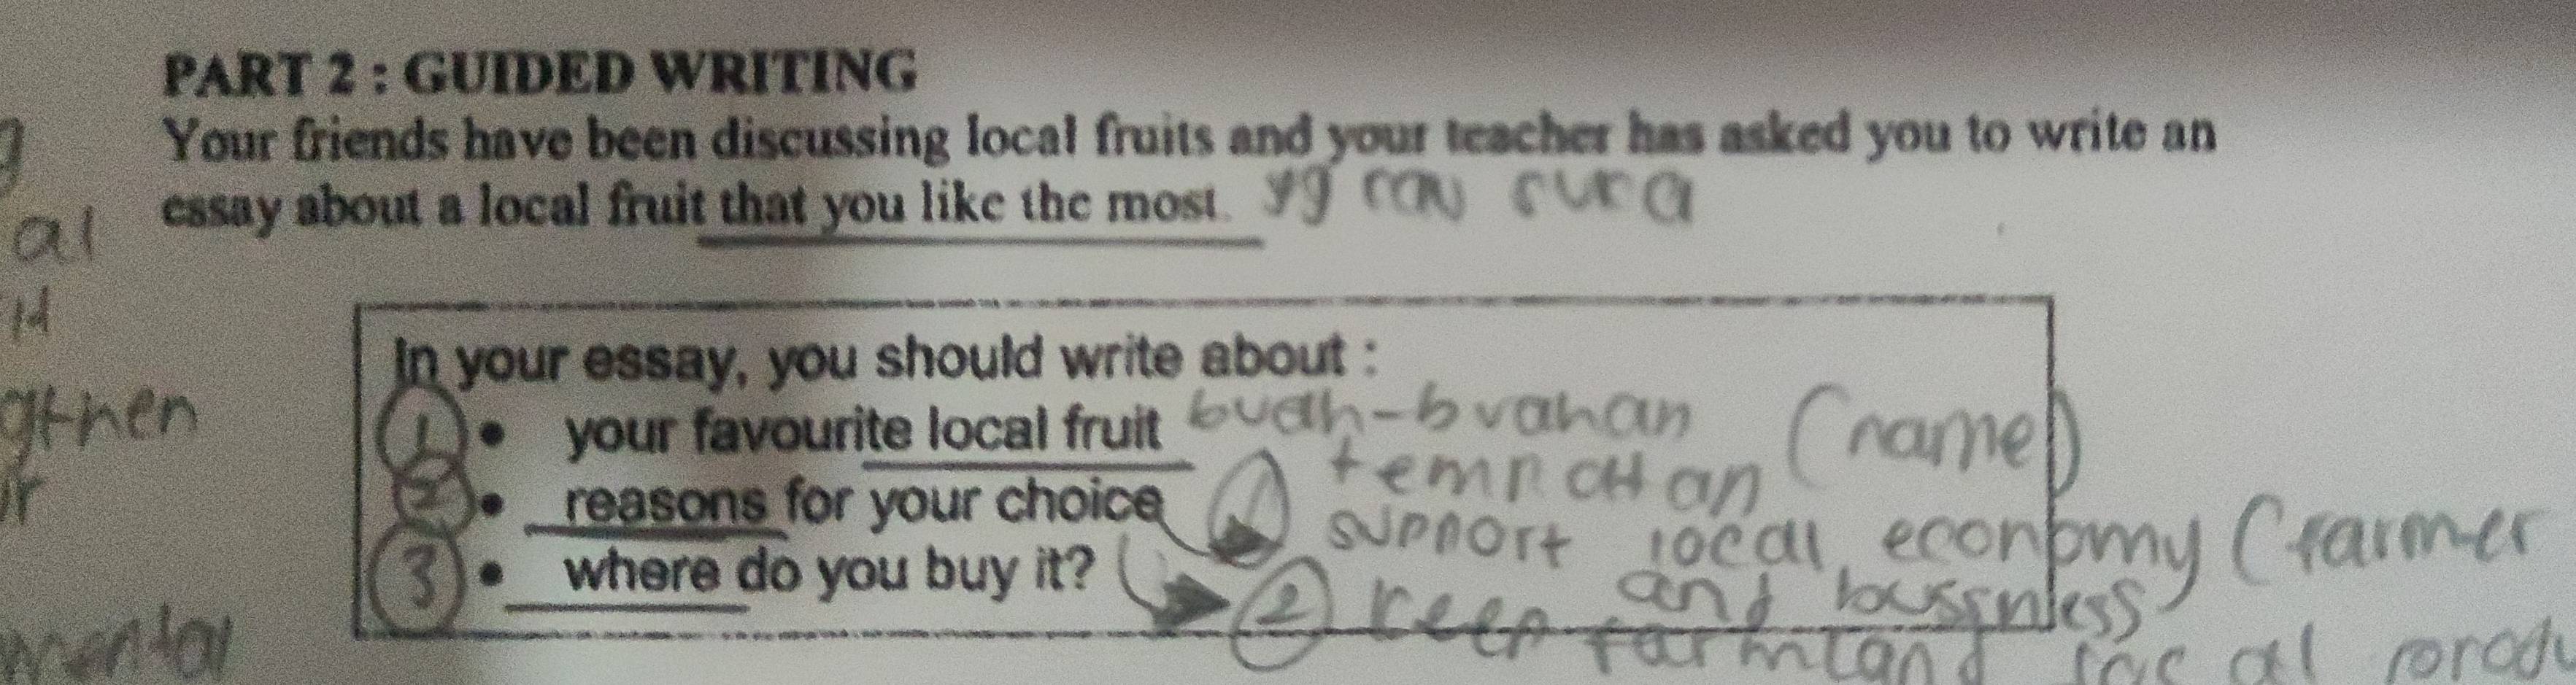 PART 2 : GUIDED WRITING
Your friends have been discussing local fruits and your teacher has asked you to write an
essay about a local fruit that you like the most. yg
al
In your essay, you should write about :
1 • your favourite local fruit buah-buahan (name)
gthen
2 • reasons for your choice 1 support local economy (farmer
and bussnless
3 • where do you buy it? 2 keep farmland local produ
mental